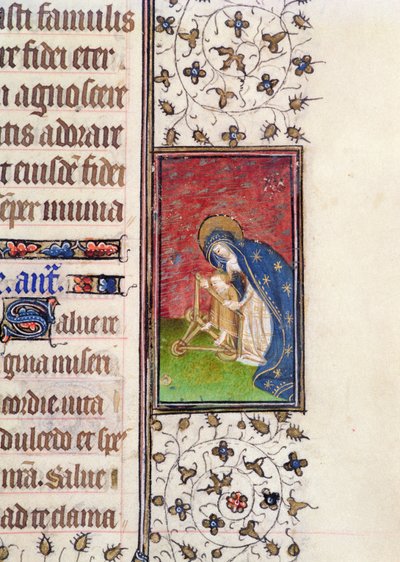 isti famulis
re fidei eter
i agnoscere
ntis adorare
t eiusdē fidei
ēper munia
e. anť.
Salue re
gina miseri
cordie uita
dulcedo et spes
nr̄a. Salue
ad te clama